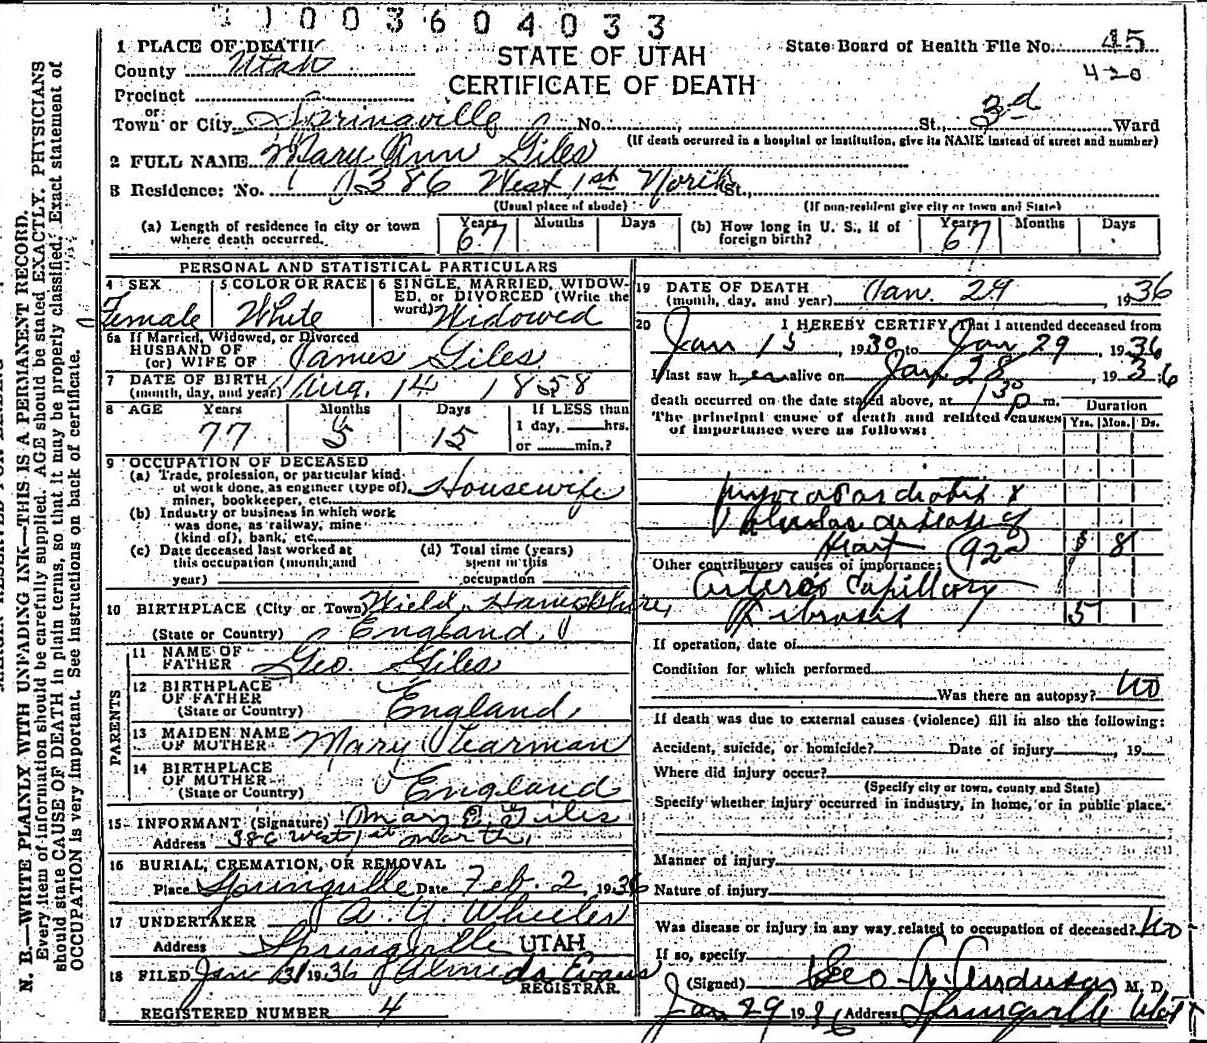 1003604033
STATE OF UTAH
CERTIFICATE OF DEATH
State Board of Health File No. 45
420
1 PLACE OF DEATH
County Utah
Precinct
or
Town or City Springville No. St., 3rd Ward
(If death occurred in a hospital or institution, give its NAME instead of street and number)
2 FULL NAME Mary Ann Giles
3 Residence: No. 386 West 1st North St.
(Usual place of abode) (If non-resident give city or town and State)
(a) Length of residence in city or town where death occurred. Years 67 Months Days (b) How long in U. S., if of foreign birth? Years 67 Months Days
PERSONAL AND STATISTICAL PARTICULARS
4 SEX Female
5 COLOR OR RACE White
6 SINGLE, MARRIED, WIDOWED, or DIVORCED (Write the word) Widowed
6a If Married, Widowed, or Divorced
HUSBAND OF
(or) WIFE OF James Giles
7 DATE OF BIRTH (month, day, and year) Aug. 14 1858
8 AGE Years 77 Months 5 Days 15 If LESS than 1 day, hrs. or min.?
9 OCCUPATION OF DECEASED
(a) Trade, profession, or particular kind of work done, as engineer (type of), miner, bookkeeper, etc. Housewife
(b) Industry or business in which work was done, as railway, mine (kind of), bank, etc.
(c) Date deceased last worked at this occupation (month and year)
(d) Total time (years) spent in this occupation
10 BIRTHPLACE (City or Town) Wield, Hampshire,
(State or Country) England
PARENTS
11 NAME OF FATHER Geo. Giles
12 BIRTHPLACE OF FATHER (State or Country) England
13 MAIDEN NAME OF MOTHER Mary
14 BIRTHPLACE OF MOTHER (State or Country) England
15 INFORMANT (Signature) Mary E. Giles
Address 386 West 1st North,
16 BURIAL, CREMATION, OR REMOVAL
Place Springville Date Feb. 2, 1936
17 UNDERTAKER A. Y. Wheeler
Address Springville UTAH
18 FILED Jan 31 1936 Almeda Evans
REGISTRAR.
REGISTERED NUMBER 4
19 DATE OF DEATH (month, day, and year) Jan. 29, 1936
20 I HEREBY CERTIFY, That I attended deceased from
Jan 15, 1930 to Jan 29, 1936
I last saw her alive on Jan 28, 1936
death occurred on the date stated above, at 130 p m.
The principal cause of death and related causes of importance were as follows: Duration Yrs. Mos. Ds.
Myocarditis &
Valvular disease of
Heart 92 8
Other contributory causes of importance:
Arterio Capillary
Fibrosis 5
If operation, date of
Condition for which performed
Was there an autopsy? No
If death was due to external causes (violence) fill in also the following:
Accident, suicide, or homicide? Date of injury , 19
Where did injury occur?
(Specify city or town, county and State)
Specify whether injury occurred in industry, in home, or in public place.
Manner of injury
Nature of injury
Was disease or injury in any way related to occupation of deceased? No
If so, specify
(Signed) Geo A Anderson M. D.
Jan 29 1936 Address Springville Utah
N. B.—WRITE PLAINLY WITH UNFADING INK—THIS IS A PERMANENT RECORD.
Every item of information should be carefully supplied. AGE should be stated EXACTLY. PHYSICIANS
should state CAUSE OF DEATH in plain terms, so that it may be properly classified. Exact statement of
OCCUPATION is very important. See instructions on back of certificate.